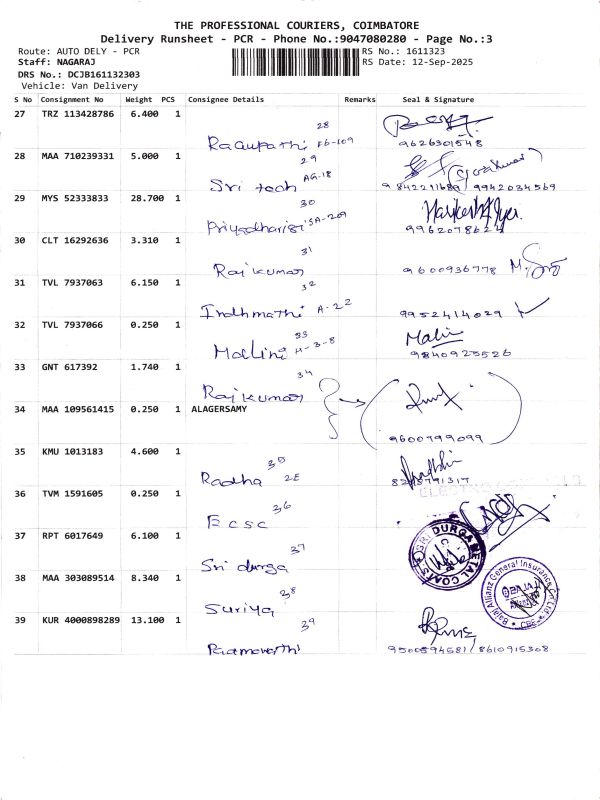 THE PROFESSIONAL COURIERS, COIMBATORE
Delivery Runsheet - PCR - Phone No.:9047080280 - Page No.:3
Route: AUTO DELY - PCR
RS No.: 1611323
Staff: NAGARAJ
RS Date: 12-Sep-2025
DRS No.: DCJB161132303
Vehicle: Van Delivery
S No Consignment No Weight PCS Consignee Details Remarks Seal & Signature
27 TRZ 113428786 6.400 1
28
Ragupathi F6-109
9626301548
28 MAA 710239331 5.000 1
29
Sri tech AG-18
9842211689 / 9942034569
29 MYS 52333833 28.700 1
30
Priyadharisi SA-209
9962078622
30 CLT 16292636 3.310 1
31
Rajkumar
9600936778
31 TVL 7937063 6.150 1
32
Indhmathi A-22
9952414029
32 TVL 7937066 0.250 1
33
Mallini H-3-8
Malini
9840925526
33 GNT 617392 1.740 1
34
Rajkumar
34 MAA 109561415 0.250 1 ALAGERSAMY
9600799099
35 KMU 1013183 4.600 1
35
Radha 2E
36 TVM 1591605 0.250 1
36
Ecsc
37 RPT 6017649 6.100 1
37
Sri durga
SRI DURGA METAL COATS
38 MAA 303089514 8.340 1
38
Suriya
Bajaj Allianz General Insurance Co Ltd
CBE
39 KUR 4000898289 13.100 1
39
Ramamoorthi
9500594581 / 8610915308